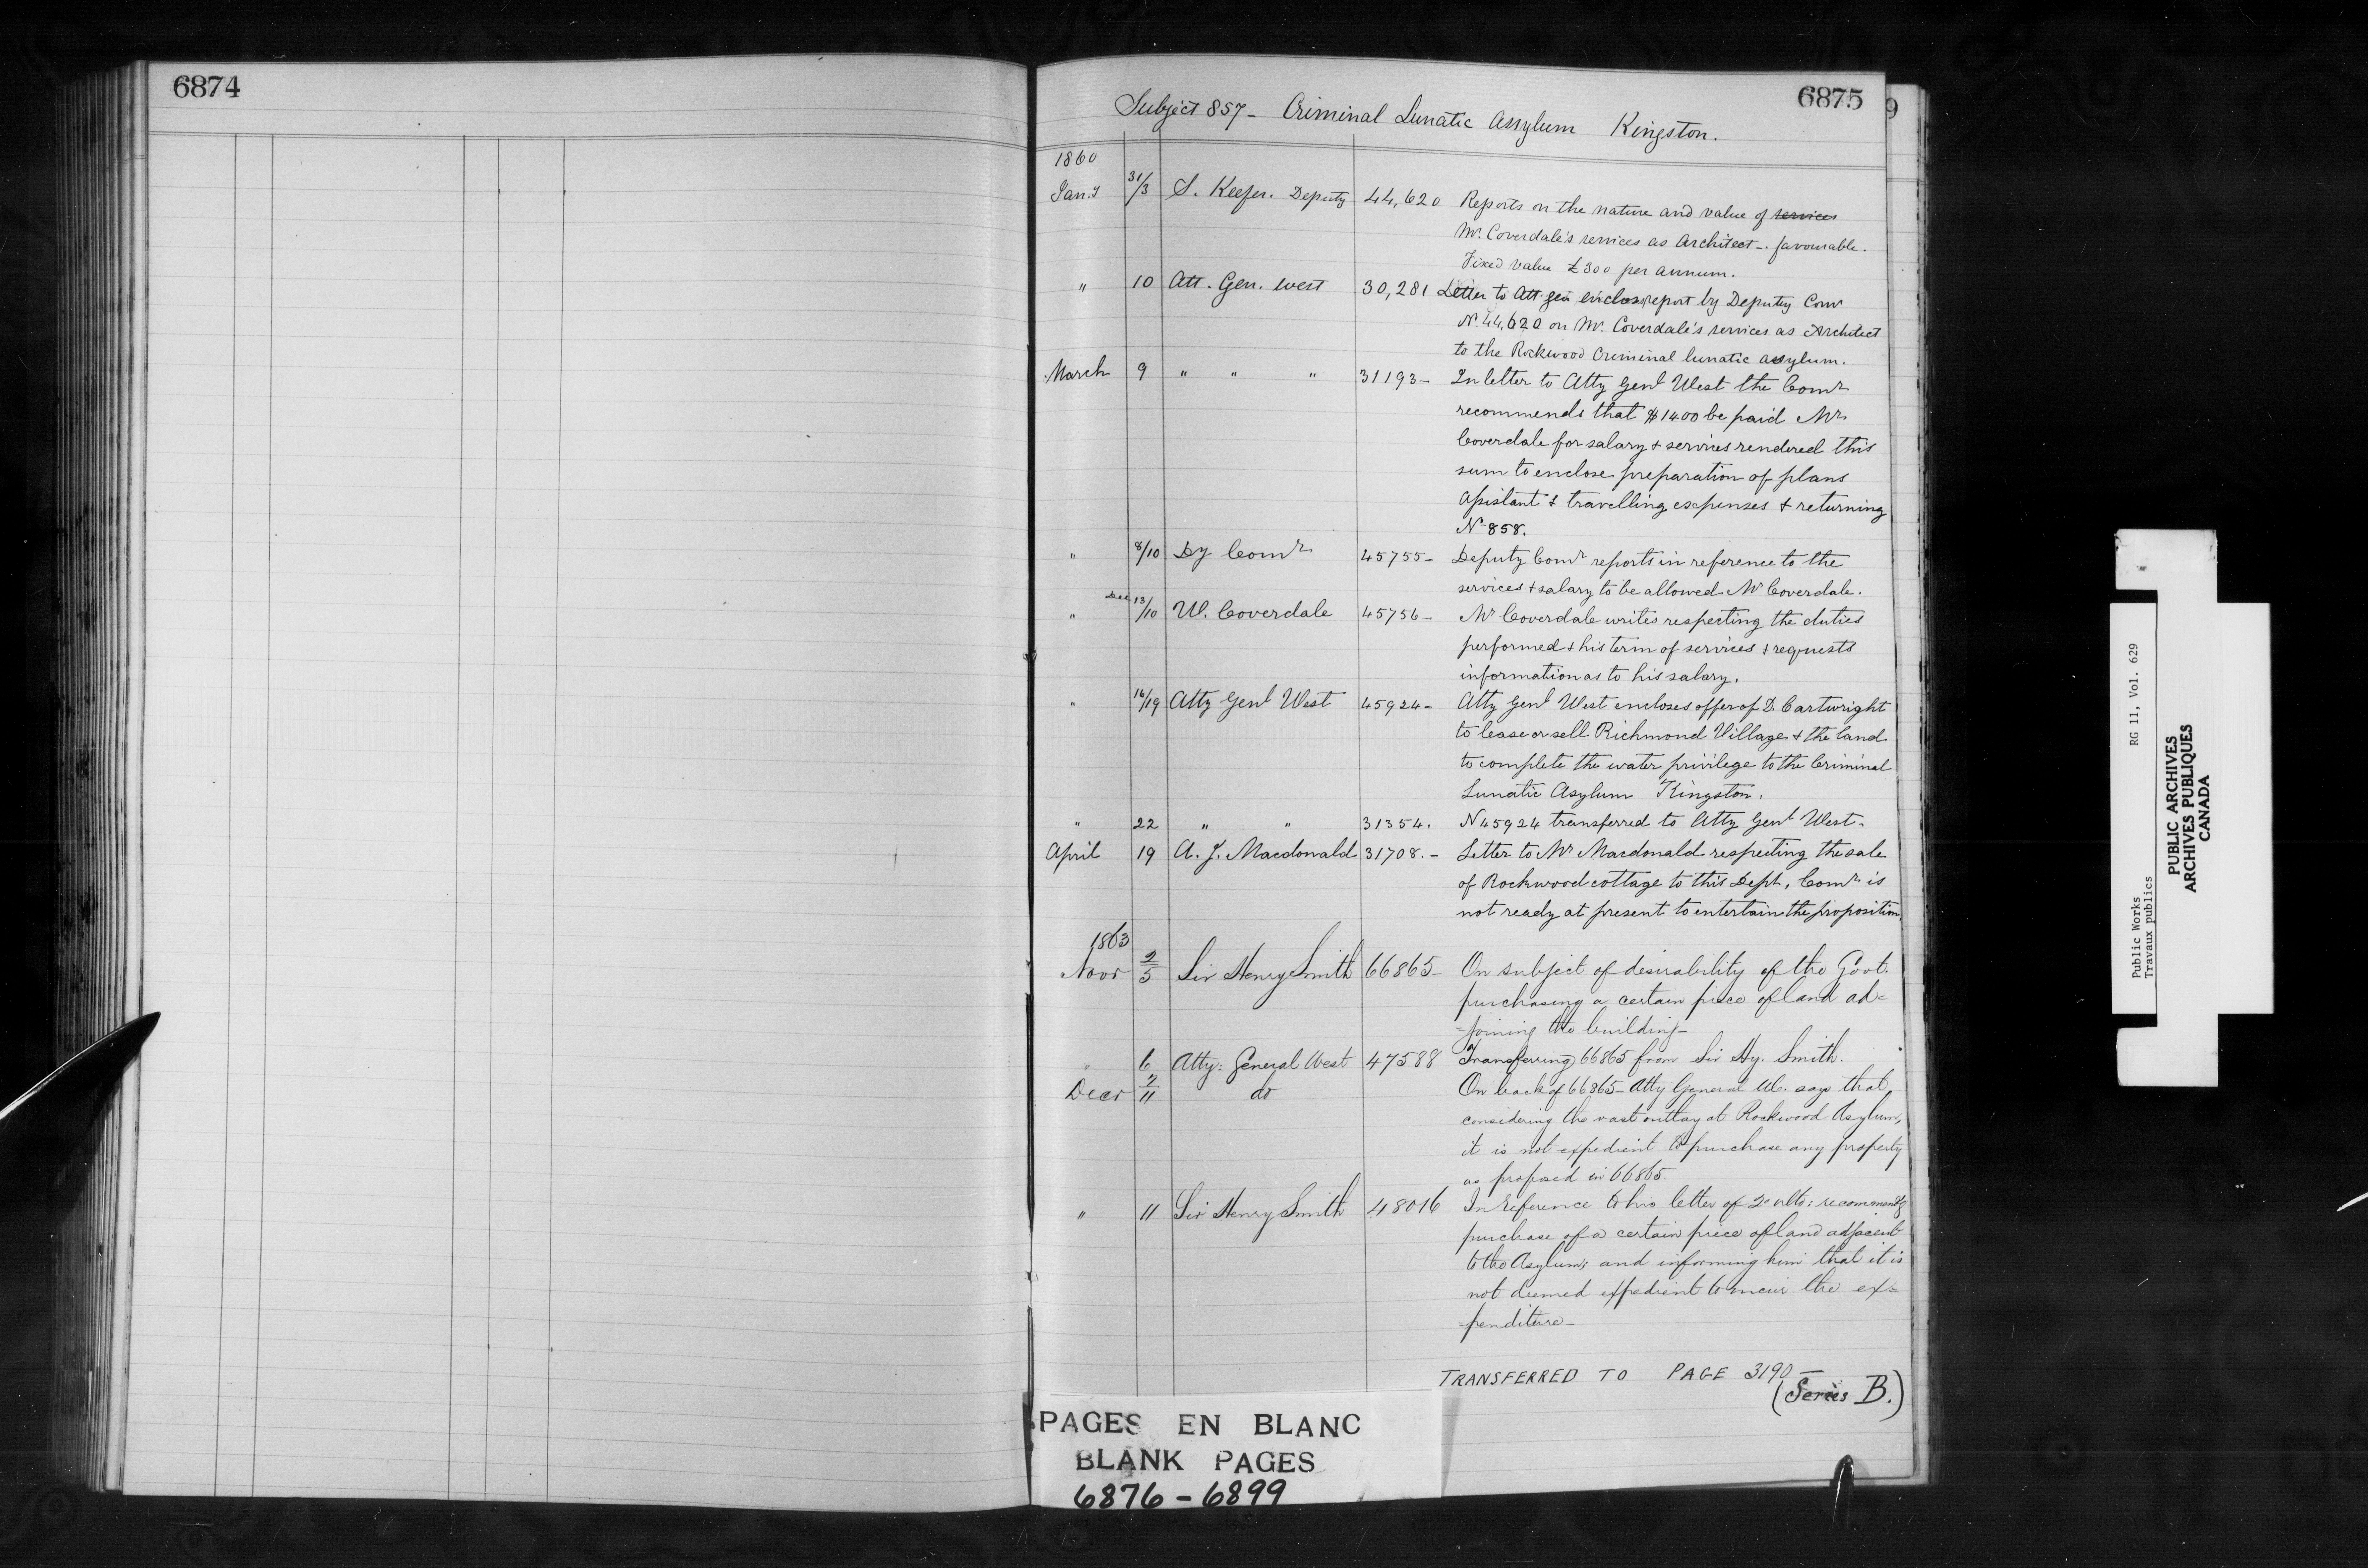 6874
6875
9
Subject 857 - Criminal Lunatic Assylum Kingston.
1860
Jan.y 31/3 S. Keefer. Deputy 44,620 Reports on the nature and value of services
Mr. Coverdale's services as Architect -. favourable.
Fixed value £300 per annum.
" 10 Att. Gen. West 30,281 Letter to Att gen enclos report by Deputy Comr
No. 44,620 on Mr. Coverdale's services as Architect
to the Rockwood Criminal lunatic assylum.
March 9 " " " 31193- In letter to Atty Genl West the Comr
recommends that $1400 be paid Mr
Coverdale for salary & services rendered this
sum to enclose preparation of plans
Assistant & travelling expenses & returning
No 858.
" 8/10 Dy Comr 45755- Deputy Comr reports in reference to the
services & salary to be allowed Mr Coverdale.
" Dec 13/10 W. Coverdale 45756- Mr Coverdale writes respecting the duties
performed & his term of services & requests
information as to his salary.
" 16/19 Atty Genl West 45924- Atty Genl West encloses offer of D. Cartwright
to lease or sell Richmond Village & the land
to complete the water privilege to the Criminal
Lunatic Asylum Kingston.
" 22 " " 31354. N 45924 transferred to Atty Genl West.
April 19 A. J. Macdonald 31708.- Letter to Mr Macdonald respecting the sale
of Rockwood cottage to this Dept, Comr is
not ready at present to entertain the proposition.
1863
Novr 2/5 Sir Henry Smith 66865- On subject of desirability of the Govt.
purchasing a certain piece of land ad=
=joining the building-
" 6 Atty: General West 47588 Transferring 66865 from Sir Hy. Smith.
Decr 7/11 do On back of 66865- Atty General W. says that
considering the vast outlay at Rockwood Asylum,
it is not expedient to purchase any property
as proposed in 66865.
" 11 Sir Henry Smith 48016 In reference to his letter of 2d ulto: recommendg
purchase of a certain piece of land adjacent
to the Asylum; and informing him that it is
not deemed expedient to incur the ex=
=penditure-
TRANSFERRED TO PAGE 3190-
(Series B.)
PAGES EN BLANC
BLANK PAGES
6876 - 6899
Public Works RG 11, Vol. 629
Travaux publics
PUBLIC ARCHIVES
ARCHIVES PUBLIQUES
CANADA